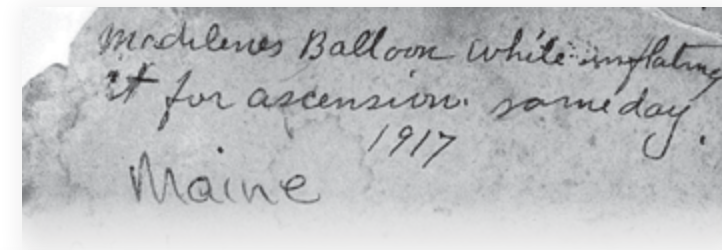 Madilenes Balloon while inflating
it for ascension. same day.
1917
Maine